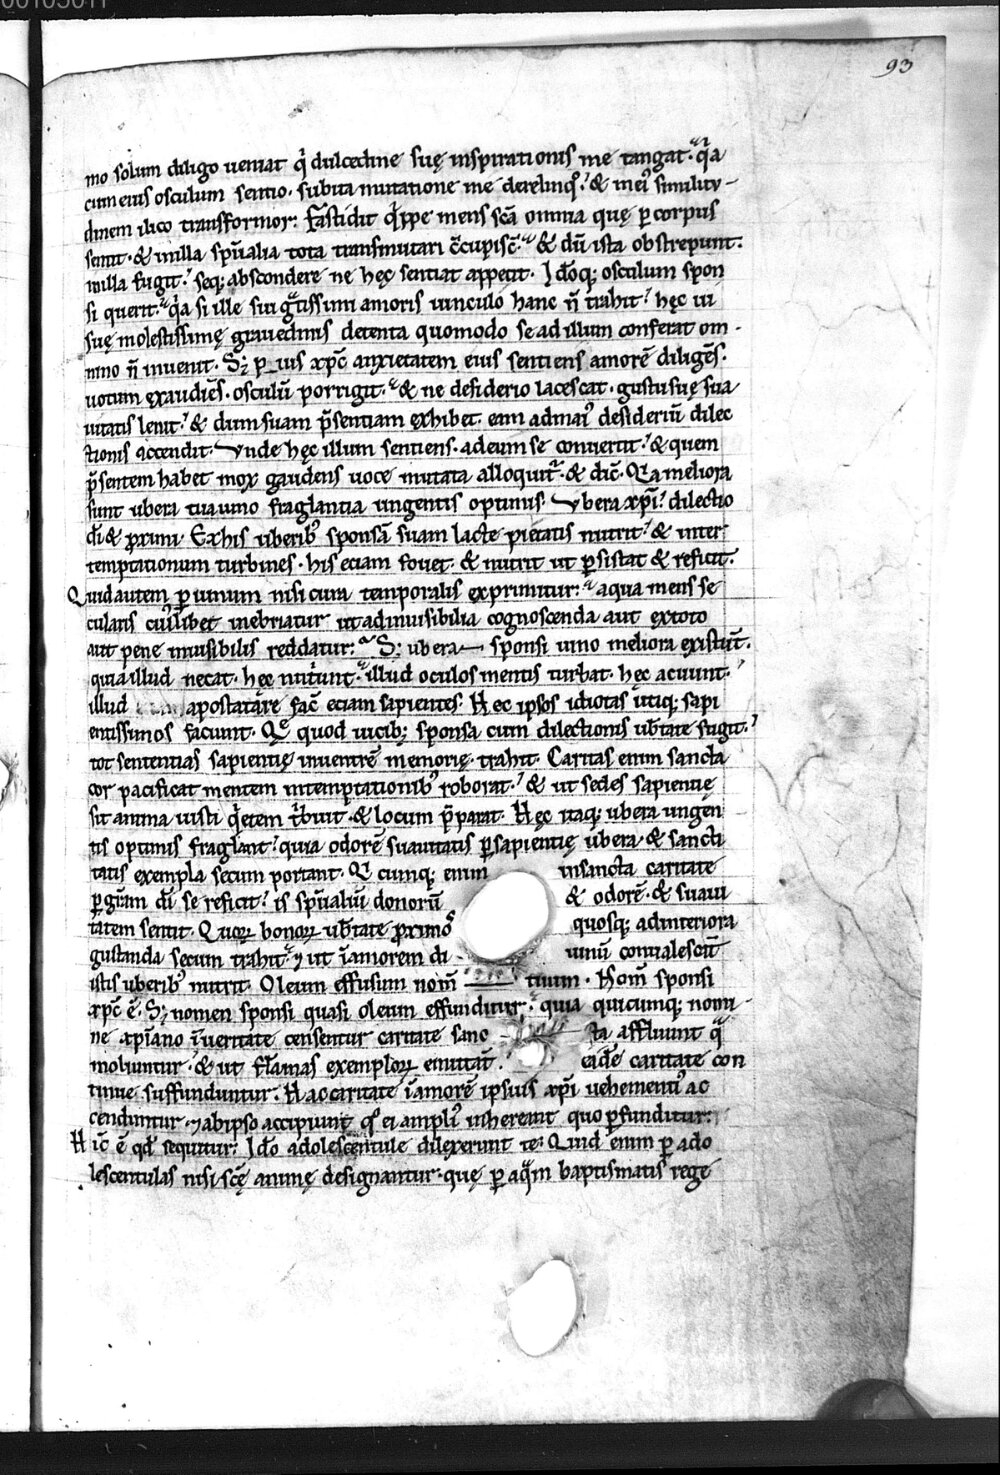 93
mo solum diligo ueniat q̇ dulcedine suę inspirationis me tangat. q̇a
cum eius osculum sentio. subita mutatione me derelinq̇. & in eiꝰ similitu-
dinem ilico transformor. Fastidit q̇ppe mens sc̄a omnia quę ꝑ corpus
sentit. & in illa sp̄ualia tota transmutari c̄cupisc̄. & dū ista obstrepunt.
in illa fugit. seq; abscondere ne hęc sentiat appetit. Id̄oq; osculum spon
si querit. q̇a si ille sui gͣtissimi amoris uinculo hanc n̄ trahit. hęc ui
suę molestissimę grauedinis detenta quomodo se ad illum conferat om-
nino n̄ inuenit. S; xp̄c anxietatem eius sentiens amorē diligēs.
uotum exaudiēs. osculū porrigit. & ne desiderio lacescat. gustu suę sua
uitatis lenit. & dum suam p̄sentiam exhibet. eam ad maiꝰ desideriū dilec
tionis accendit. Vnde hęc illum sentiens. ad eum se conuertit. & quem
p̄sentem habet mox gaudens uoce mutata alloquit̄. & dic̄. Q̇a meliora
sunt ubera tua uino fraglantia ungentis optimis. Vbera xp̄i. dilectio
d̄i & ꝓximi. Ex his uberibꝰ sponsā suam lacte pietatis nutrit. & inter
temptationum turbines. his eciam fouet. & nutrit ut ꝑsistat & reficit.
Quid autem ꝑ uinum nisi cura temporalis exprimitur. a qua mens se
cularis cuiꝰlibet inebriatur ut ad inuisibilia cognoscenda aut ex toto
aut pene inuisibilis reddatur. S; ubera sponsi uino meliora existunt̄.
quia illud necat. hęc nut̍unt. illud oculos mentis turbat. hęc acuunt.
illud apostatare fac̄ eciam sapientes. Hec ipsos idiotas utiq; sapi
entissimos faciunt. quod uicib; sponsa cum dilectionis ub̄tate sugit.
tot sententias sapientię inuentrē memorię trahit. Caritas enim sancta
cor pacificat mentem in temptationibꝰ roborat. & ut sedes sapientię
sit anima iusti q̇etem t̍buit. & locum p̄parat. Hęc itaq; ubera ungen
tis optimis fraglant. quia odorē suauitatis ꝑ sapientię ubera. & sancti
tatis exempla secum portant. Q̇cumq; enim in sancta caritate
ꝑ gr̄am d̄i se reficit. is sp̄ualiū donorū & odorē. & suaui
tatem sentit. Quoꝝ bonoꝝ ub̄tate ꝓximoſ quosq; ad interiora
gustanda secum trahit. ⁊ ut ī amorem di uinū conualescūt
istis uberibꝰ nutrit. Oleum effusum nom̄ tuum. Nom̄ sponsi
xp̄c ē. S; nomen sponsi quasi oleum effunditur. quia quicumq; nomi-
ne xp̄iano ī ueritate censentur caritate sanc ta affluunt q̇
moliuntur. & ut flāmas exemploꝝ emittāt. eadē caritate con
tinue suffunduntur. Hac caritate ī amorē ipsius xp̄i uehementiꝰ ac
cenduntur. ⁊ ab ipso accipiunt qd̄ ei ampliꝰ inhereant quo ꝑfunditur.
Hic̄ ē qd̄ sequitur. Id̄o adolescentule dilexerunt te. Quid enim ꝑ ado
lescentulas nisi sc̄ę animę designantur. quę ꝑ aq̄m baptismatis rege